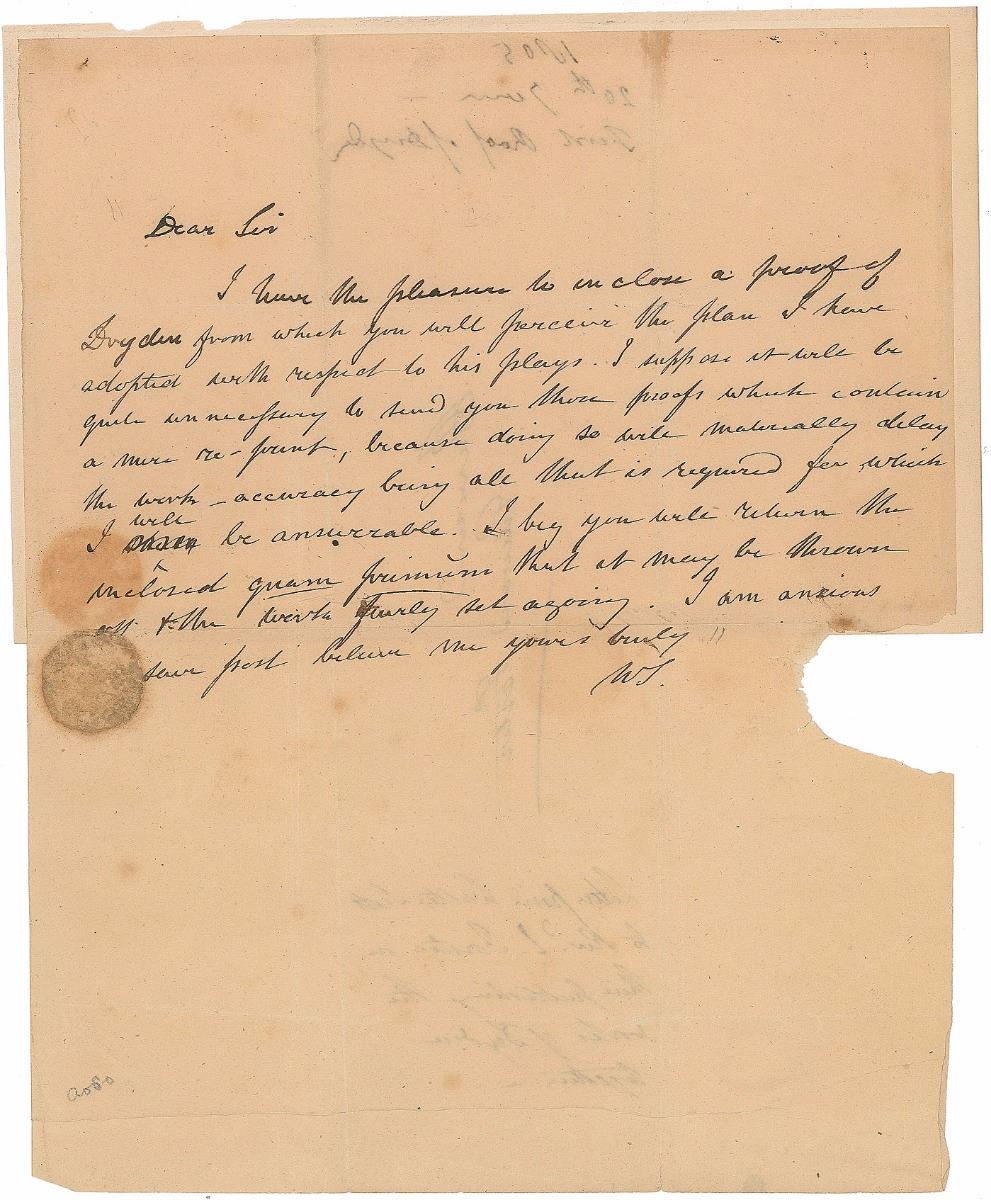 Dear Sir
I have the pleasure to inclose a proof of
Dryden from which you will perceive the plan I have
adopted with respect to his plays. I suppose it will be
quite unnecessary to send you those proofs which contain
a mere re-print, because doing so will materially delay
the work – accuracy being all that is required for which
will
I be answerable. I beg you will return the
inclosed quam primum that it may be thrown
off & the work fairly set agoing. I am anxious
save post believe me yours truly
WS.
1805
20th June
First Proof of Dryden
Letter from Walter Scott
to
works of Dryden